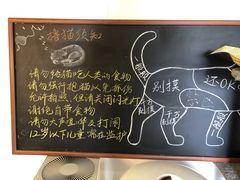 撸猫须知
请勿给猫吃人类的食物
请勿强行抱猫以免抓伤
允许拍照，但请关闭闪光灯
谢绝自带食物
请勿大声喧哗及打闹
12岁以下儿童需在监护
别摸
还OK
一般
一般